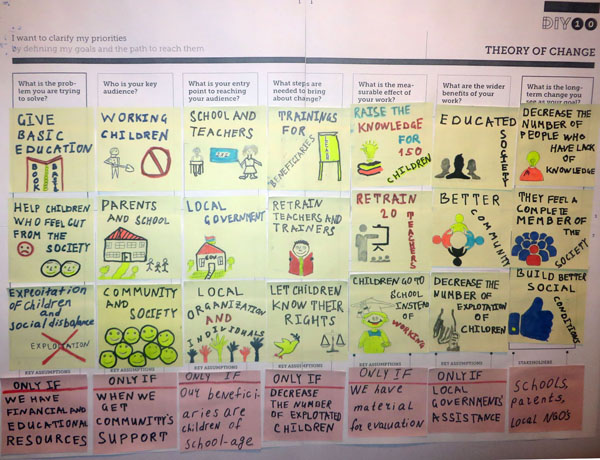 DIY 10
I want to clarify my priorities
By defining my goals and the path to reach them.
THEORY OF CHANGE
What is the prob-
lem you are trying
to solve?
Who is your key
audience?
What is your entry
point to reaching
your audience?
What steps are
needed to bring
about change?
What is the mea-
surable effect of
your work?
What are the wider
benefits of your
work?
What is the long-
term change you
see as your goal?
GIVE
BASIC
EDUCATION
BOOK
BASIC
WORKING
CHILDREN
SCHOOL AND
TEACHERS
TRAININGS
FOR
BENEFICIARIES
RAISE THE
KNOWLEDGE
FOR 150
CHILDREN
EDUCATED
SOCIETY
DECREASE THE
NUMBER OF
PEOPLE WHO
HAVE LACK
OF
KNOWLEDGE
HELP CHILDREN
WHO FEEL CUT
FROM THE
SOCIETY
PARENTS
AND SCHOOL
LOCAL
GOVERNMENT
RETRAIN
TEACHERS AND
TRAINERS
RETRAIN
20
TEACHERS
BETTER
COMMUNITY
THEY FEEL A
COMPLETE
MEMBER OF
THE
SOCIETY
Exploitation
of children
and
social disbalance
EXPLOITATION
COMMUNITY
AND SOCIETY
LOCAL
ORGANIZATION
AND
INDIVIDUALS
LET CHILDREN
KNOW THEIR
RIGHTS
CHILDREN GO TO
SCHOOL
INSTEAD
OF
WORKING
DECREASE THE
NUMBER OF
EXPLOITATION OF
CHILDREN
BUILD BETTER
SOCIAL
CONDITIONS
KEY ASSUMPTIONS
KEY ASSUMPTIONS
KEY ASSUMPTIONS
KEY ASSUMPTIONS
KEY ASSUMPTIONS
KEY ASSUMPTIONS
STAKEHOLDERS
ONLY IF
WE HAVE
FINANCIAL AND
EDUCATIONAL
RESOURCES
ONLY IF
WHEN WE
GET
COMMUNITY'S
SUPPORT
ONLY IF
Our benefici-
aries are
children of
school-age
ONLY IF
DECREASE
THE NUMBER
OF EXPLOTATED
CHILDREN
ONLY IF
WE HAVE
material
for evaluation
ONLY IF
LOCAL
GOVERNMENTS'
ASSISTANCE
Schools,
parents,
local NGO's